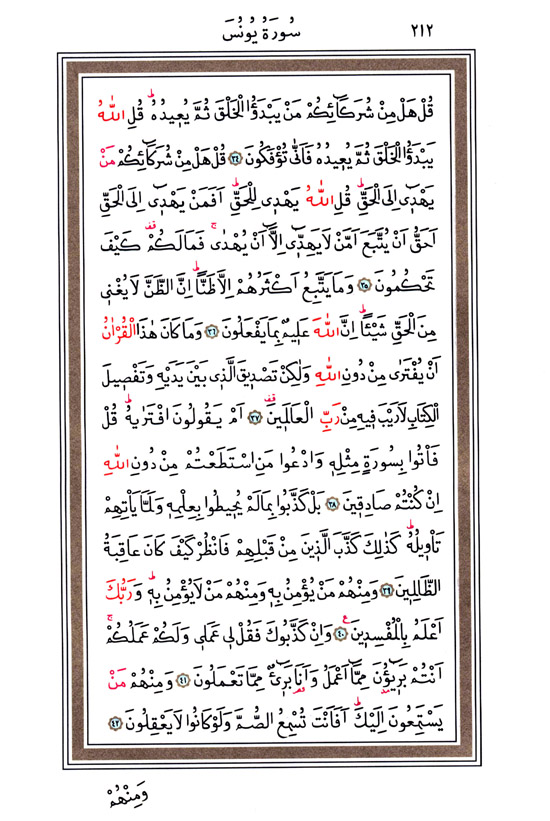 ٢١٢ سُورَةُ يُونُسَ
قُلْ هَلْ مِنْ شُرَكَٓائِكُمْ مَنْ يَبْدَؤُا الْخَلْقَ ثُمَّ يُع۪يدُهُۜ قُلِ اللّٰهُ
يَبْدَؤُا الْخَلْقَ ثُمَّ يُع۪يدُهُ فَاَنّٰى تُؤْفَكُونَ ﴿٣٤﴾ قُلْ هَلْ مِنْ شُرَكَٓائِكُمْ مَنْ
يَهْد۪ٓي اِلَى الْحَقِّۜ قُلِ اللّٰهُ يَهْد۪ي لِلْحَقِّۜ اَفَمَنْ يَهْد۪ٓي اِلَى الْحَقِّ
اَحَقُّ اَنْ يُتَّبَعَ اَمَّنْ لَا يَهِدّ۪ٓي اِلَّٓا اَنْ يُهْدٰىۚ فَمَا لَكُمْ۠ كَيْفَ
تَحْكُمُونَ ﴿٣٥﴾ وَمَا يَتَّبِعُ اَكْثَرُهُمْ اِلَّا ظَنًّاۜ اِنَّ الظَّنَّ لَا يُغْن۪ي
مِنَ الْحَقِّ شَيْـًٔاۜ اِنَّ اللّٰهَ عَل۪يمٌ بِمَا يَفْعَلُونَ ﴿٣٦﴾ وَمَا كَانَ هٰذَا الْقُرْاٰنُ
اَنْ يُفْتَرٰى مِنْ دُونِ اللّٰهِ وَلٰكِنْ تَصْد۪يقَ الَّذ۪ي بَيْنَ يَدَيْهِ وَتَفْص۪يلَ
الْكِتَابِ لَا رَيْبَ ف۪يهِ مِنْ رَبِّ الْعَالَم۪ينَ۠ ﴿٣٧﴾ اَمْ يَقُولُونَ افْتَرٰيهُۜ قُلْ
فَأْتُوا بِسُورَةٍ مِثْلِه۪ وَادْعُوا مَنِ اسْتَطَعْتُمْ مِنْ دُونِ اللّٰهِ
اِنْ كُنْتُمْ صَادِق۪ينَ ﴿٣٨﴾ بَلْ كَذَّبُوا بِمَا لَمْ يُح۪يطُوا بِعِلْمِه۪ وَلَمَّا يَأْتِهِمْ
تَأْو۪يلُهُۜ كَذٰلِكَ كَذَّبَ الَّذ۪ينَ مِنْ قَبْلِهِمْ فَانْظُرْ كَيْفَ كَانَ عَاقِبَةُ
الظَّالِم۪ينَ ﴿٣٩﴾ وَمِنْهُمْ مَنْ يُؤْمِنُ بِه۪ وَمِنْهُمْ مَنْ لَا يُؤْمِنُ بِه۪ۜ وَرَبُّكَ
اَعْلَمُ بِالْمُفْسِد۪ينَ۟ ﴿٤٠﴾ وَاِنْ كَذَّبُوكَ فَقُلْ ل۪ي عَمَل۪ي وَلَكُمْ عَمَلُكُمْۚ
اَنْتُمْ بَر۪ٓيؤُ۫نَ مِمَّٓا اَعْمَلُ وَاَنَا۬ بَر۪ٓيءٌ مِمَّا تَعْمَلُونَ ﴿٤١﴾ وَمِنْهُمْ مَنْ
يَسْتَمِعُونَ اِلَيْكَۜ اَفَاَنْتَ تُسْمِعُ الصُّمَّ وَلَوْ كَانُوا لَا يَعْقِلُونَ ﴿٤٢﴾
وَمِنْهُمْ